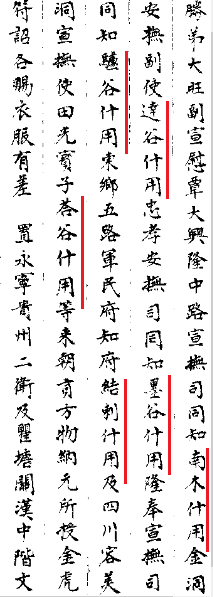 勝弟大旺副宣慰覃大興隆中路宣撫司同知南木什用金洞
安撫副使達谷什用忠孝安撫司同知墨谷什用隆奉宣撫司
同知驢谷什用東鄉五路軍民府知府結剌什用及四川容美
洞宣撫使田光寶子荅谷什用等來朝貢方物納元所授金虎
符詔各賜衣服有差　置永寧貴州二衛及瞿塘關漢中階文